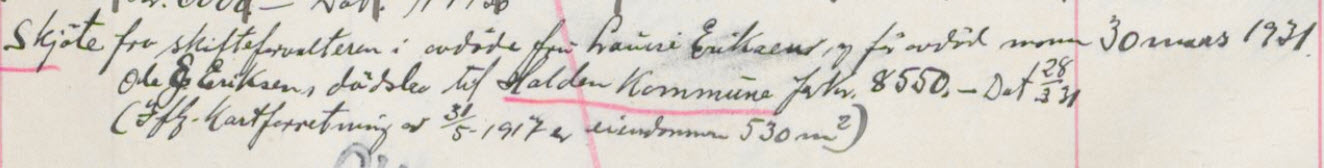 Skjöte fra skifteforvalteren i avdöde fru Lauise Eriksens, og föravdöd mann 30 mars 1931.
Ole E Eriksens dödsbo til Halden Kommune for kr. 8550.- Dat 28/3 31
(Iflg. Kartforretning av 31/5-1917 er eiendommen 530 m²)